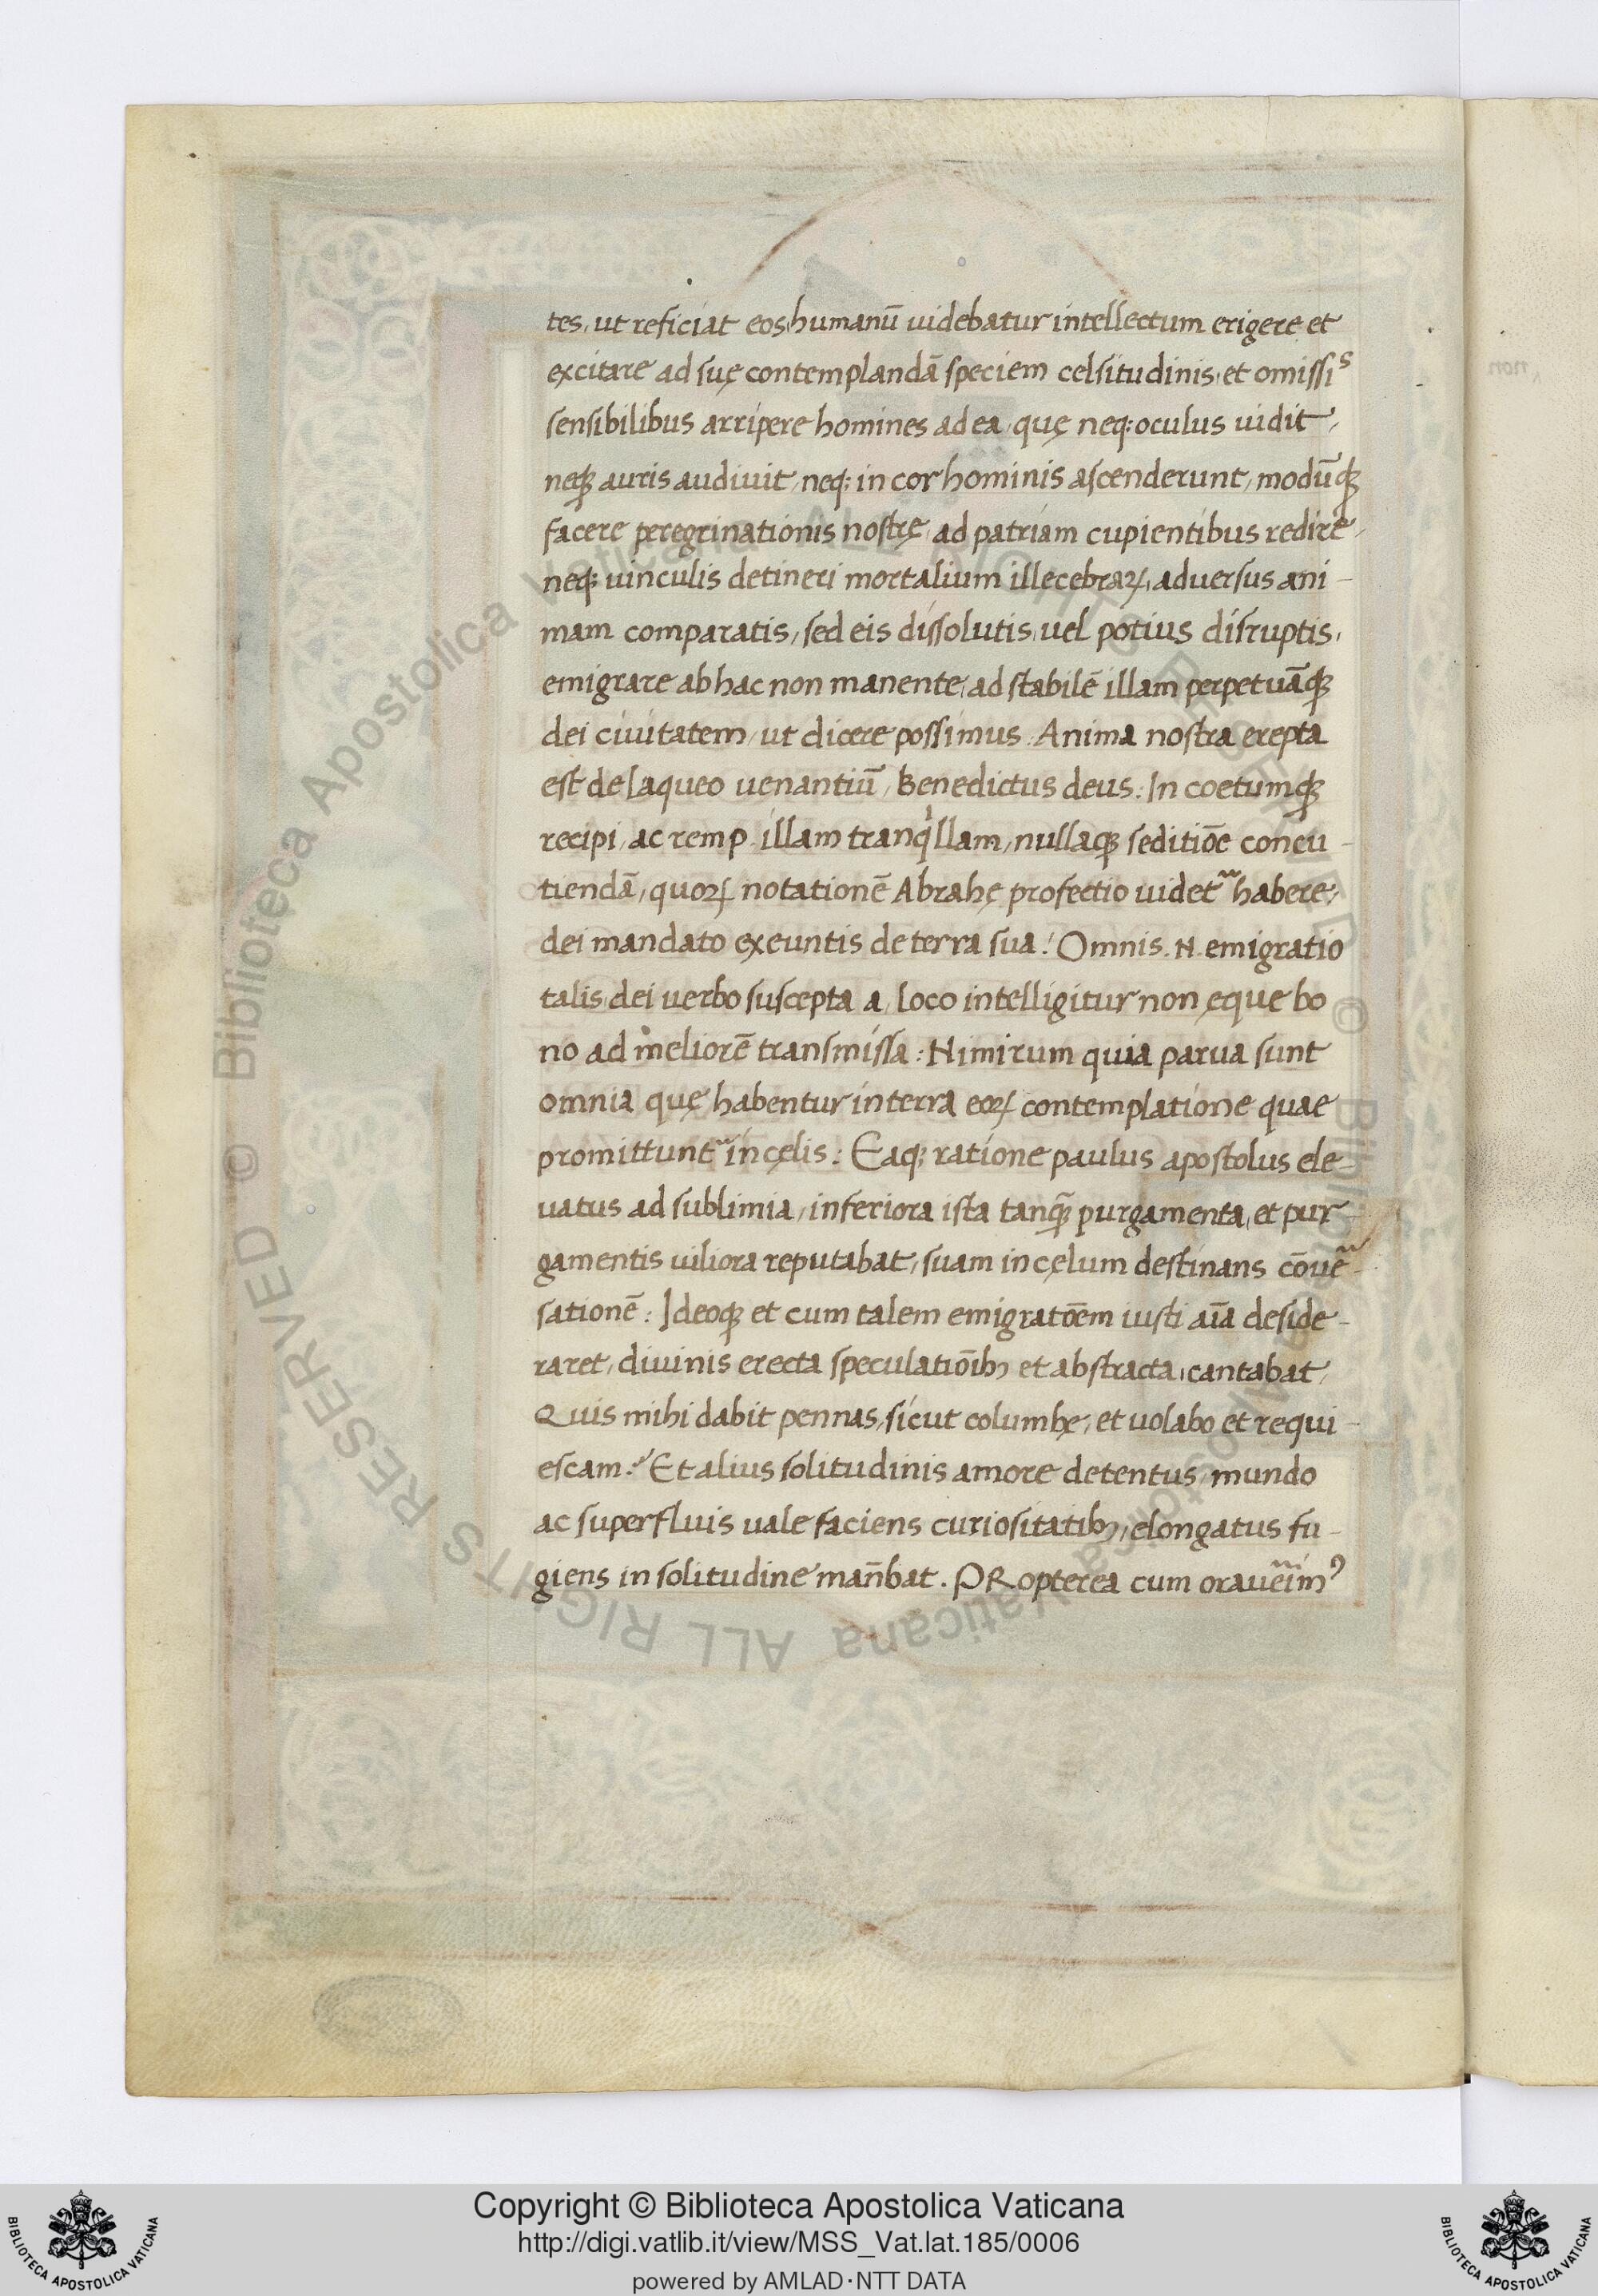 tes, ut reficiat eos, humanū uidebatur intellectum erigere et
excitare ad suę contemplandā speciem celsitudinis, et omissis
sensibilibus arripere homines ad ea, quę neq; oculus uidit,
neq; auris audiuit, neq; in cor hominis ascenderunt, modūq;
facere peregrinationis nostrę, ad patriam cupientibus redire,
neq; uinculis detineri mortalium illecebraꝝ, aduersus ani-
mam comparatis, sed eis dissolutis, uel potius disruptis,
emigrare ab hac non manente, ad stabilē illam perpetuāq;
dei ciuitatem, ut dicere possimus. Anima nostra erepta
est de laqueo uenantiū, Benedictus deus: In coetumq;
recipi, ac remp. illam tranqⁱllam, nullaq; seditiōe concu-
tiendā, quoꝝ notationē Abrahę profectio uidet᷑ habere,
dei mandato exeuntis de terra sua: Omnis .N. emigratio
talis dei uerbo suscepta a, loco intelligitur non ęque bo
no ad meliorē transmissa: Nimirum quia parua sunt
omnia quę habentur in terra eoꝝ contemplatione quae
promittunt᷑ in cęlis: Eaq; ratione paulus apostolus ele-
uatus ad sublimia, inferiora ista tanq̃; purgamenta, et pur-
gamentis uiliora reputabat, suam in cęlum destinans cōue᷑-
sationē: Ideoq; et cum talem emigratōem iusti aīa deside-
raret, diuinis erecta speculatiōib; et abstracta, cantabat,
Quis mihi dabit pennas, sicut columbę, et uolabo et requi-
escam: Et alius solitudinis amore detentus, mundo
ac superfluis uale faciens curiositatib;, elongatus fu-
giens in solitudine man̄bat. PRopterea cum oraue᷑imꝰ
non
Biblioteca Apostolica Vaticana ALL RIGHTS RESERVED © Biblioteca Apostolica Vaticana ALL RIGHTS RESERVED ©
Copyright © Biblioteca Apostolica Vaticana
http://digi.vatlib.it/view/MSS_Vat.lat.185/0006
powered by AMLAD·NTT DATA
BIBLIOTECA APOSTOLICA VATICANA
BIBLIOTECA APOSTOLICA VATICANA